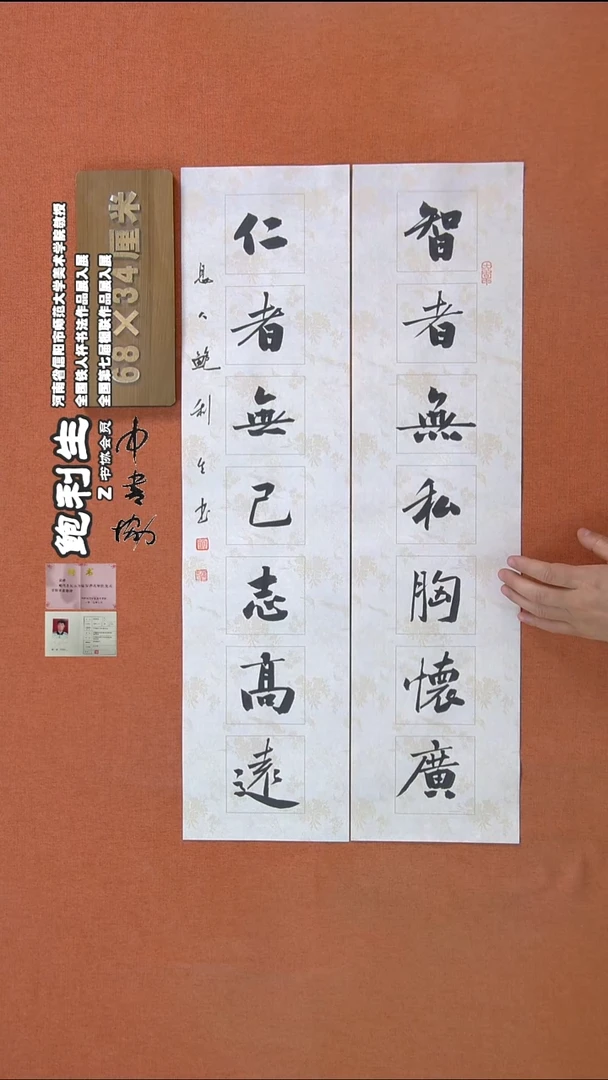 智者無私胸懷廣
仁者無己志高遠
息人鲍利生书
68×34厘米
河南省信阳市师范大学美术学院教授
全国铁人杯书法作品展入展
全国第七届楹联作品展入展
鲍利生
Z书协会员
中书协